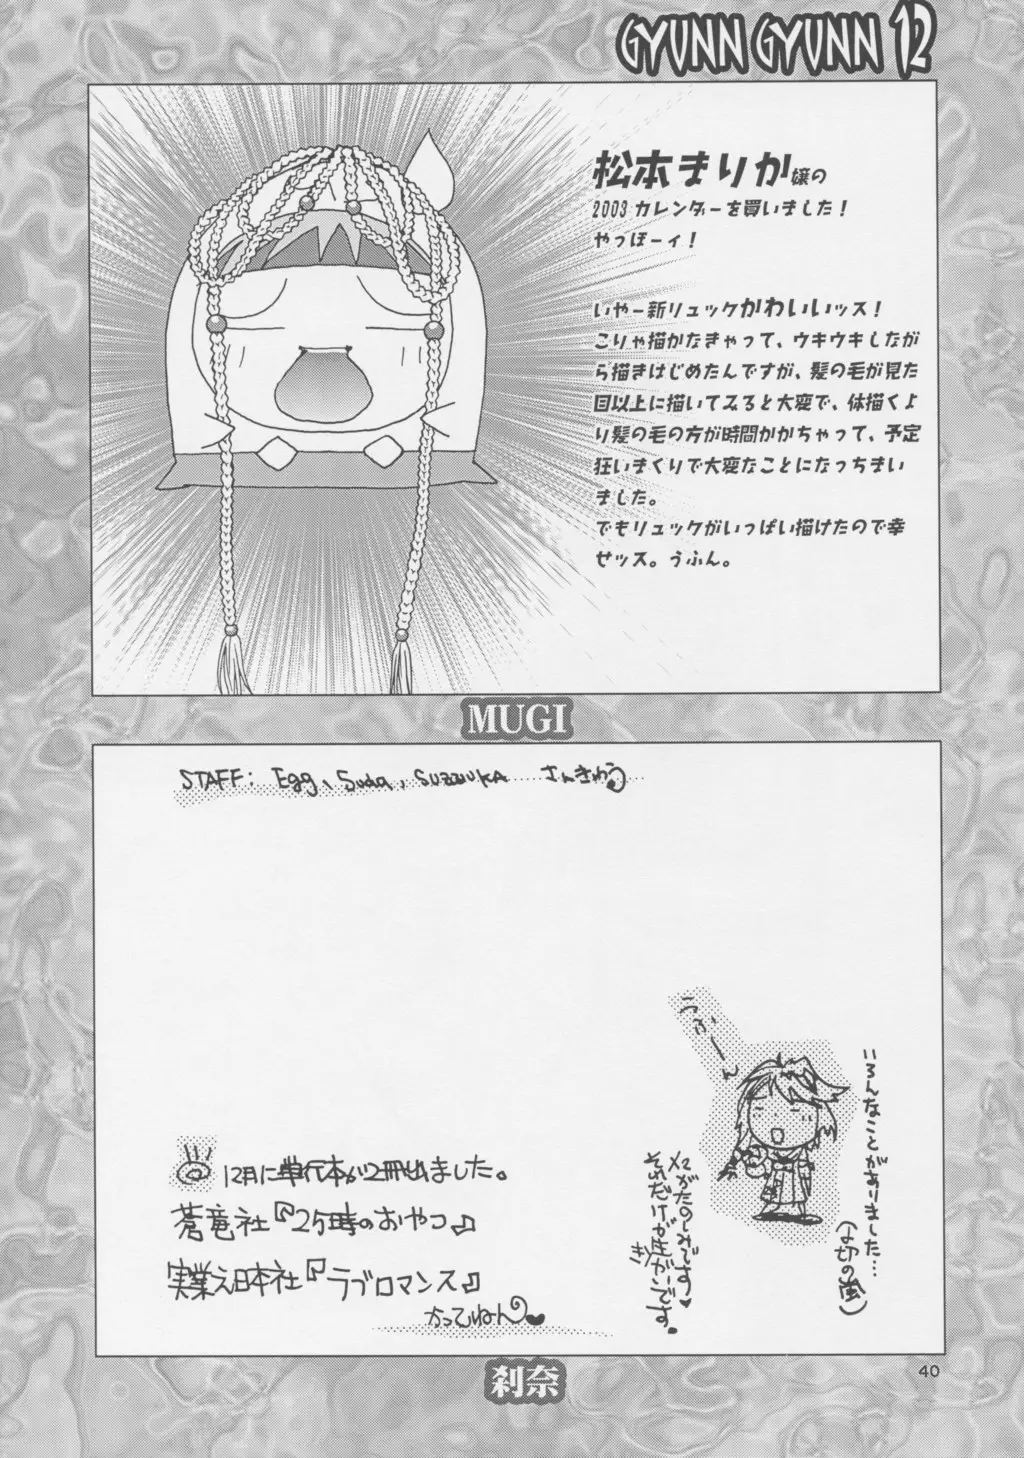 GYUNN GYUNN 12
松本まりか嬢の
2003 カレンダーを買いました！
やっほーィ！
いやー新リュックかわいいッス！
こりゃ描かなきゃって、ウキウキしなが
ら描きはじめたんですが、髪の毛が見た
目以上に描いてみると大変で、体描くよ
り髪の毛の方が時間かかちゃって、予定
狂いまくりで大変なことになっちまい
ました。
でもリュックがいっぱい描けたので幸
せッス。うふん。
MUGI
STAFF: Egg、Suda, SUZZUKA さんきゅう
うふーん
いろんなことがありました…
(〆切の嵐)
それだけが生きがいです。
12月に単行本が2冊出ました。
蒼竜社『25時のおやつ』
実業之日本社『ラブロマンス』
かってねん
刹奈
40